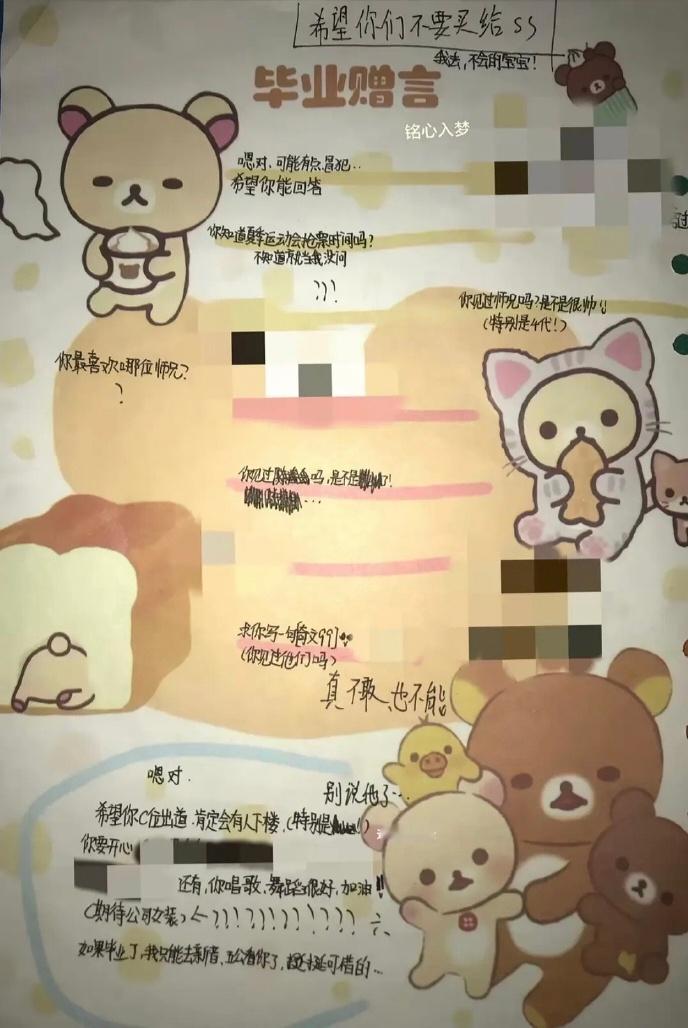 希望你们不要买给ss
我去,不会的宝宝!
毕业赠言
铭心入梦
嗯对,可能有点冒犯...
希望你能回答
你知道夏季运动会抢票时间吗?
不知道就当我没问
???
你见过师兄吗?是不是很帅!!
(特别是4代!)
你最喜欢哪位师兄?
?
你见过
吗,是不是
求你写一句
(你见过他们吗)
真不敢,也不能!!
嗯对.
别说他了...
希望你C位出道.肯定会有人下楼.(特别是
你要开心
还有,你唱歌.舞蹈很好,加油!!
(期待公司女装)←??????????
如果毕业了,我只能去新借、五公看你了,挺可惜的...